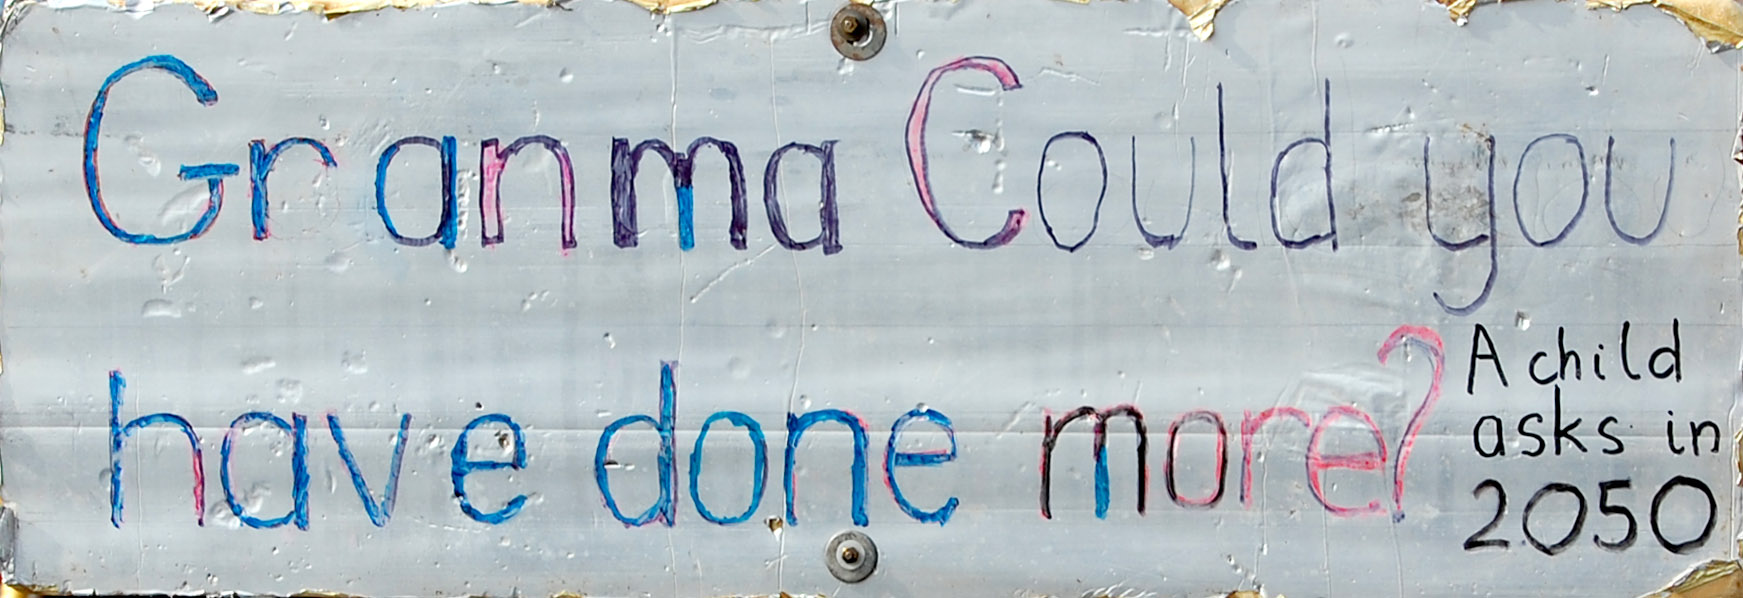 Granma Could you
have done more?
A child
asks in
2050